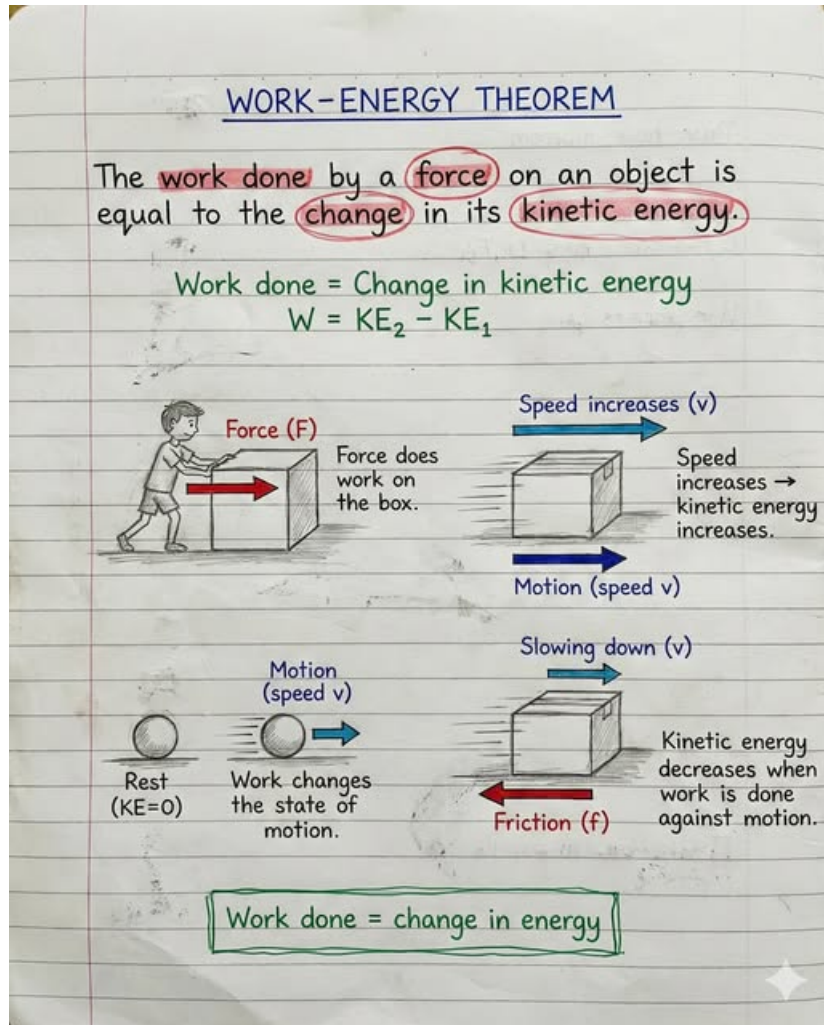 WORK-ENERGY THEOREM
The work done by a force on an object is
equal to the change in its kinetic energy.
Work done = Change in kinetic energy
W = KE₂ – KE₁
Force (F)
Force does
work on
the box.
Speed increases (v)
Speed
increases →
kinetic energy
increases.
Motion (speed v)
Motion
(speed v)
Rest
(KE=0)
Work changes
the state of
motion.
Slowing down (v)
Kinetic energy
decreases when
work is done
against motion.
Friction (f)
Work done = change in energy